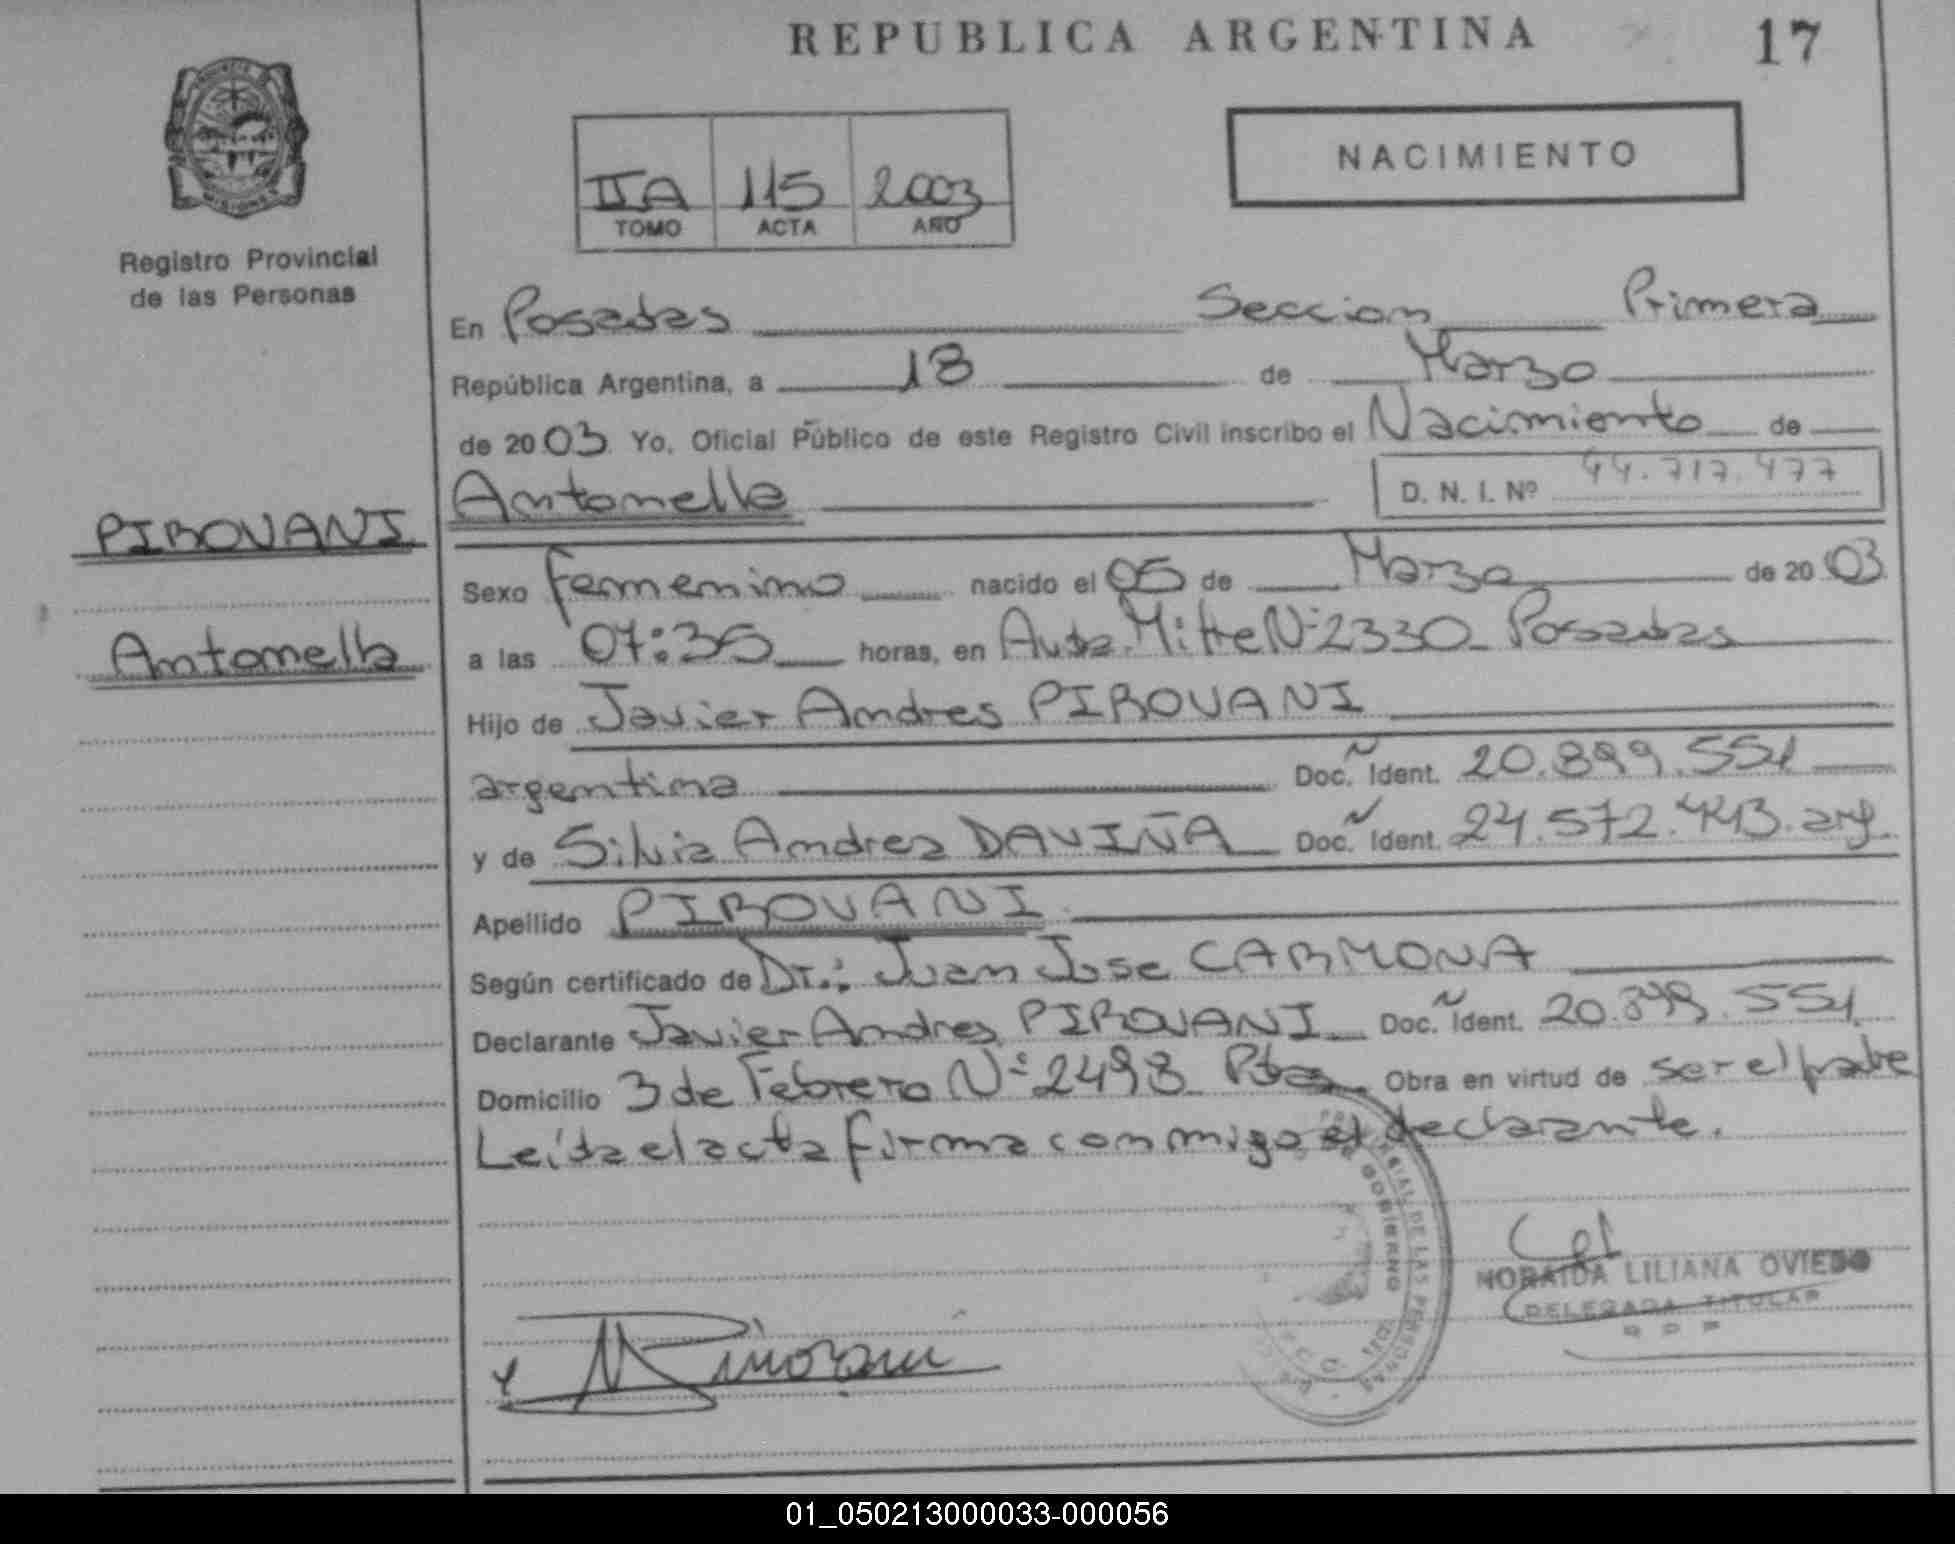 REPUBLICA ARGENTINA
17
NACIMIENTO
IIA 115 2003
TOMO ACTA AÑO
Registro Provincial
de las Personas
En Posadas Seccion Primera
República Argentina, a 18 de Marzo
de 2003 Yo, Oficial Público de este Registro Civil inscribo el Nacimiento de
Antonella
D. N. I. Nº 44.717.477
PIROVANI
Antonella
Sexo femenino nacido el 05 de Marzo de 2003
a las 07:35 horas, en Avda. Mitre Nº 2330 Posadas
Hijo de Javier Andres PIROVANI
argentina Doc. Ident. 20.899.551
y de Silvia Andrea DAVIÑA Doc. Ident. 24.572.443. arg.
Apellido PIROVANI
Según certificado de Dr.: Juan Jose CARMONA
Declarante Javier Andres PIROVANI Doc. Ident. 20.899.551
Domicilio 3 de Febrero Nº 2498 Pdas Obra en virtud de ser el padre
Leída el acta firma conmigo el declarante.
DE GOBIERNO
DE LAS PERSONAS
NORAIDA LILIANA OVIEDO
DELEGADA TITULAR
Pirovani
01_050213000033-000056